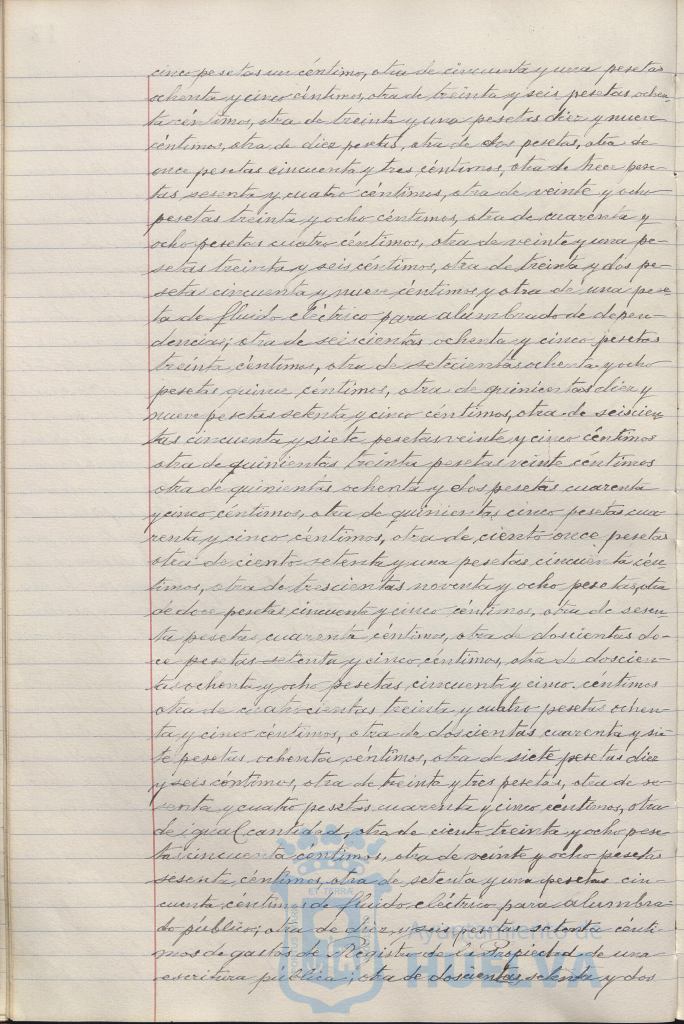 cinco pesetas un céntimo, otra de cincuenta y una pesetas
ochenta y cinco céntimos, otra de treinta y seis pesetas ochen-
ta céntimos, otra de treinta y una pesetas diez y nueve
céntimos, otra de diez pesetas, otra de dos pesetas, otra de
once pesetas cincuenta y tres céntimos, otra de trece pese-
tas sesenta y cuatro céntimos, otra de veinte y ocho
pesetas treinta y ocho céntimos, otra de cuarenta y
ocho pesetas cuatro céntimos, otra de veinte y una pe-
setas treinta y seis céntimos, otra de treinta y dos pe-
setas cincuenta y nueve céntimos y otra de una pese-
ta de fluido eléctrico para alumbrado de depen-
dencias; otra de seiscientas ochenta y cinco pesetas
treinta céntimos, otra de setecientas ochenta y ocho
pesetas quince céntimos, otra de quinientas diez y
nueve pesetas setenta y cinco céntimos, otra de seiscien-
tas cincuenta y siete pesetas veinte y cinco céntimos
otra de quinientas treinta pesetas veinte céntimos
otra de quinientas ochenta y dos pesetas cuarenta
y cinco céntimos, otra de quinientas cinco pesetas cua-
renta y cinco céntimos, otra de ciento once pesetas
otra de ciento setenta y una pesetas cincuenta cén-
timos, otra de trescientas noventa y ocho pesetas, otra
de doce pesetas cincuenta y cinco céntimos, otra de sesen-
ta pesetas cuarenta céntimos, otra de doscientas do-
ce pesetas setenta y cinco céntimos, otra de doscien-
tas ochenta y ocho pesetas cincuenta y cinco céntimos
otra de cuatrocientas treinta y cuatro pesetas ochen-
ta y cinco céntimos, otra de doscientas cuarenta y sie-
te pesetas ochenta céntimos, otra de siete pesetas diez
y seis céntimos, otra de treinta y tres pesetas, otra de se-
senta y cuatro pesetas cuarenta y cinco céntimos, otra
de igual cantidad, otra de ciento treinta y ocho pese-
tas cincuenta céntimos, otra de veinte y ocho pesetas
sesenta céntimos, otra de setenta y una pesetas cin-
cuenta céntimos de fluido eléctrico para alumbra-
do público; otra de diez y seis pesetas setenta cénti-
mos de gastos de Registro de la Propiedad de una
escritura pública; otra de doscientas setenta y dos
Ayuntamiento de
HUELVA